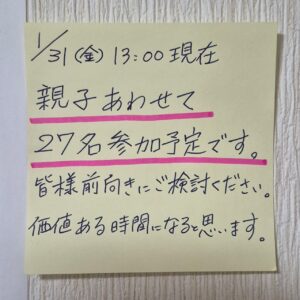 1/31(金) 13:00 現在
親子あわせて
27名参加予定です。
皆様前向きにご検討ください。
価値ある時間になると思います。